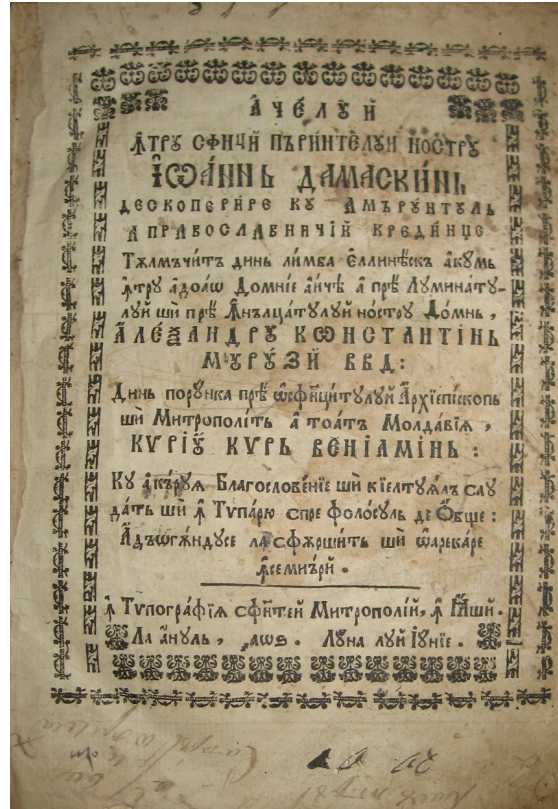 А҆ЧЕ́ЛУЙ
Ꙟ҆ТРУ СФИ҃ЦИ́Й ПЪРИ́НТЕЛУЙ НО́СТРУ
І҆Ѡ҆А́ННЬ ДАМАСКИ́НЬ
ДЕСКОПЕРИ́РЕ КУ А҆МЪРУ́НТУЛЬ
А҆ ПРАВОСЛА́ВНИЧІЙ КРЕДИ́НЦЕ
Тѫлмъчи́т динь ли́мба Є҆ллинѣ́скъ а҆ку́мь
ꙟ҆тру а҆до́аѡ Домні́е а҆и́чѣ а҆ прѣ Лумина́ту-
луй шѝ прѣ Ꙟ҆нълца́тулуй но́стру До́мнь ,
А҆ЛЕ́ѮАНДРУ КѠНСТАНТІ́НЬ
МꙊРУ́ЗИ ВВД :
Динь пору́нка прѣ ѡ҆сфи҃ци́тулуй А҆рхїепі́скопь
шѝ Митрополі́ть а҆ то́атъ Молда́віѧ ,
КѴ́РІꙊ КѴ́РЬ ВЕНІАМІ́НЬ :
Ку а҆къ́руѧ Благослове́нїе шѝ кїелтуѧ́лъ сау
да́ть шѝ ꙟ҆ Тѵпа́рю спре фоло́суль де О҆́бще :
А҆дъѡгѫ́ндусе ла сфѫрши́ть шѝ ѡ҆арека́ре
ꙟ҆семнъ́рй .
ꙟ҆ Тѵпогра́фїѧ сфи́нтей Митрополі́й , ꙟ҆ Ꙗ҆́шй .
Ла а҆́нуль , ҂аѡѕ . Лу́на луй Іу́нїе .